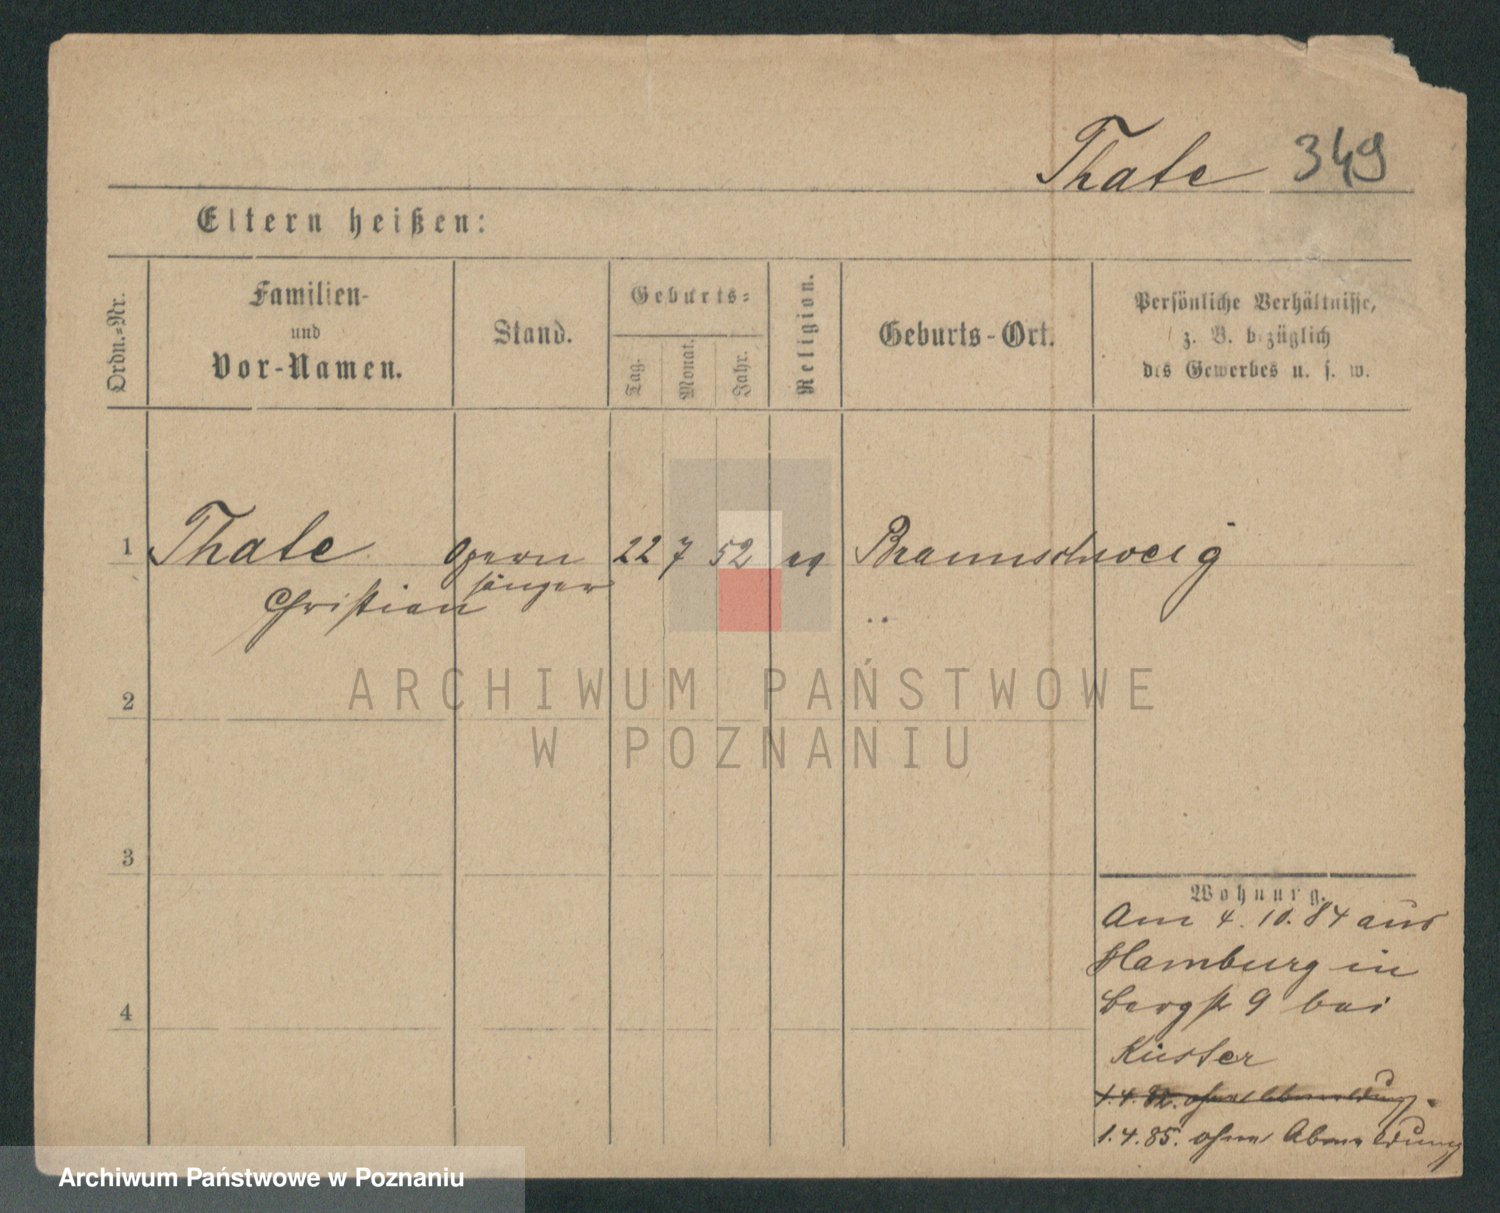 Thate 349
Eltern heißen:
Ordn.-Nr.
Familien-
und
Vor-Namen.
Stand.
Geburts-
Tag.
Monat.
Jahr.
Religion.
Geburts-Ort.
Persönliche Verhältnisse,
z. B. bezüglich
des Gewerbes u. s. w.
1 Thate Opern 22 7 52 Braunschweig
Christian sänger
2
3
4
Wohnung.
Am 4. 10. 84 aus
Hamburg in
Bergstr 9 bei
Küster
1.4.82. ohne Abmeldung.
1.4.85. ohne Abmeldung
ARCHIWUM PAŃSTWOWE
W POZNANIU
Archiwum Państwowe w Poznaniu